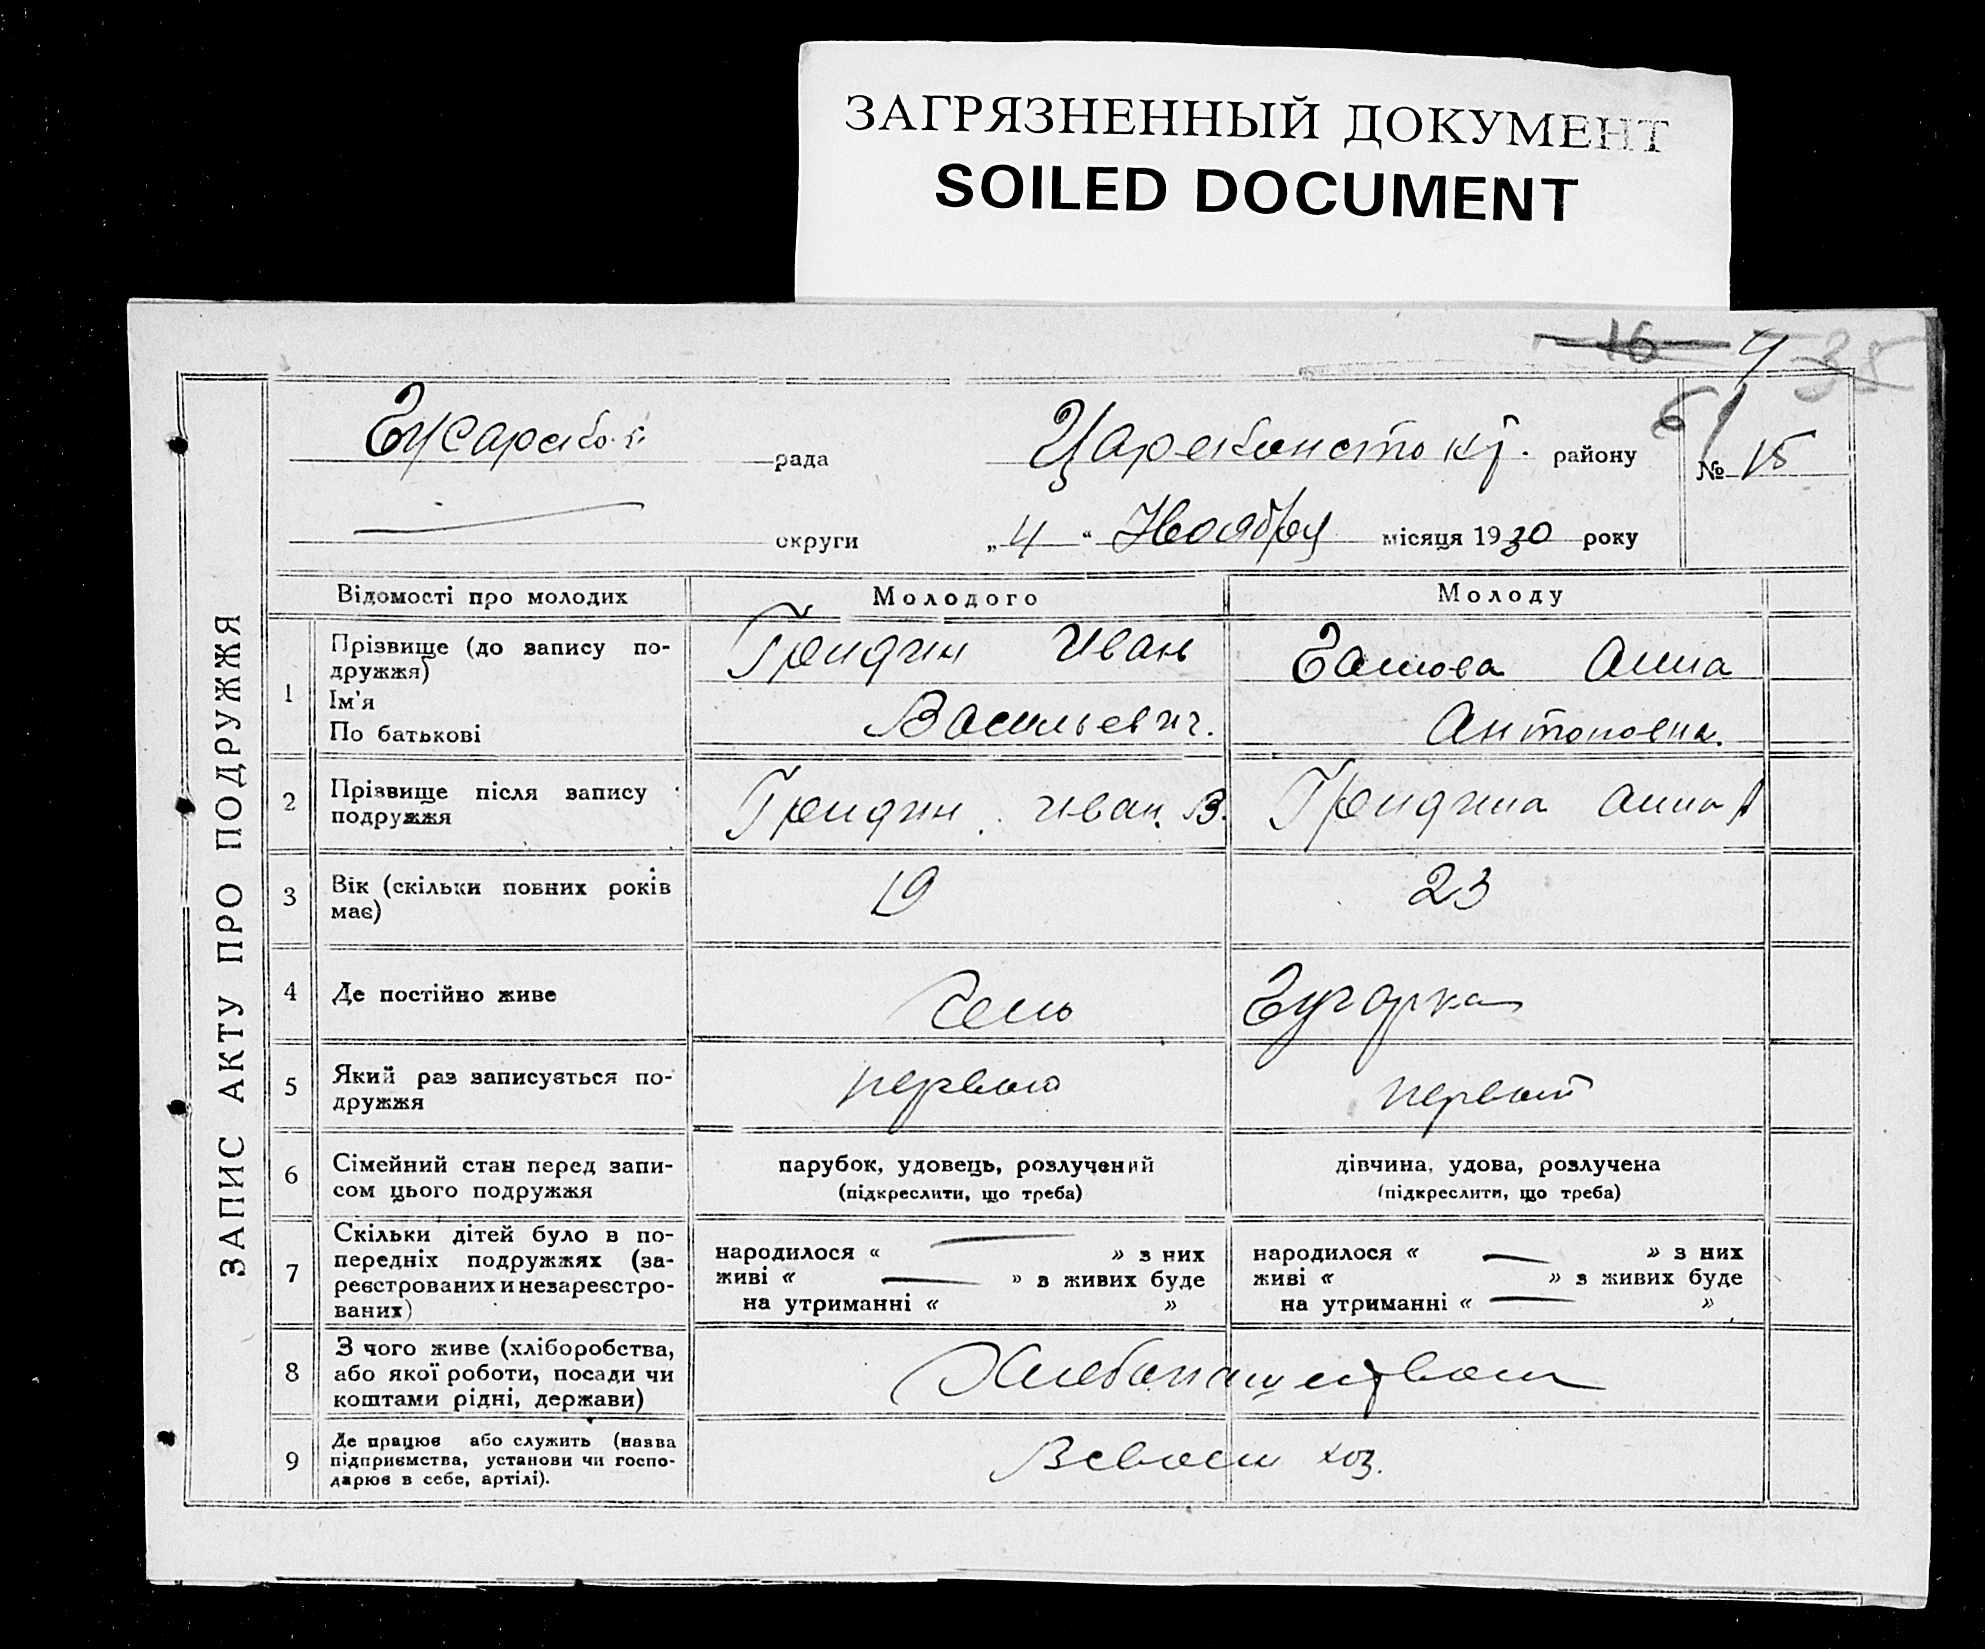 ЗАГРЯЗНЕННЫЙ ДОКУМЕНТ
SOILED DOCUMENT
16 35
61
рада району № 15
округи „4“ Ноября місяця 1930 року
ЗАПИС АКТУ ПРО ПОДРУЖЖЯ
Відомості про молодих Молодого Молоду
1 Прізвище (до запису по-
дружжя)
Ім'я
По батькові
Иван
Васильевич.
Анна
Антоновна.
2 Прізвище після запису
подружжя
Иван. В.
Анна А
3 Вік (скільки повних років
має)
19 23
4 Де постійно живе
Село
5 Який раз записується по-
дружжя
первый первый
6 Сімейний стан перед запи-
сом цього подружжя
парубок, удовець, розлучений
(підкреслити, що треба)
дівчина, удова, розлучена
(підкреслити, що треба)
7 Скільки дітей було в по-
передніх подружжях (за-
реєстрованих и незареєстро-
ваних)
народилося « — » з них
живі « — » з живих буде
на утриманні « »
народилося « — » з них
живі « » з живих буде
на утриманні « — »
8 З чого живе (хліборобства,
або якої роботи, посади чи
коштами рідні, держави)
9 Де працює або служить (назва
підприємства, установи чи госпо-
дарює в себе, артілі).
хоз.